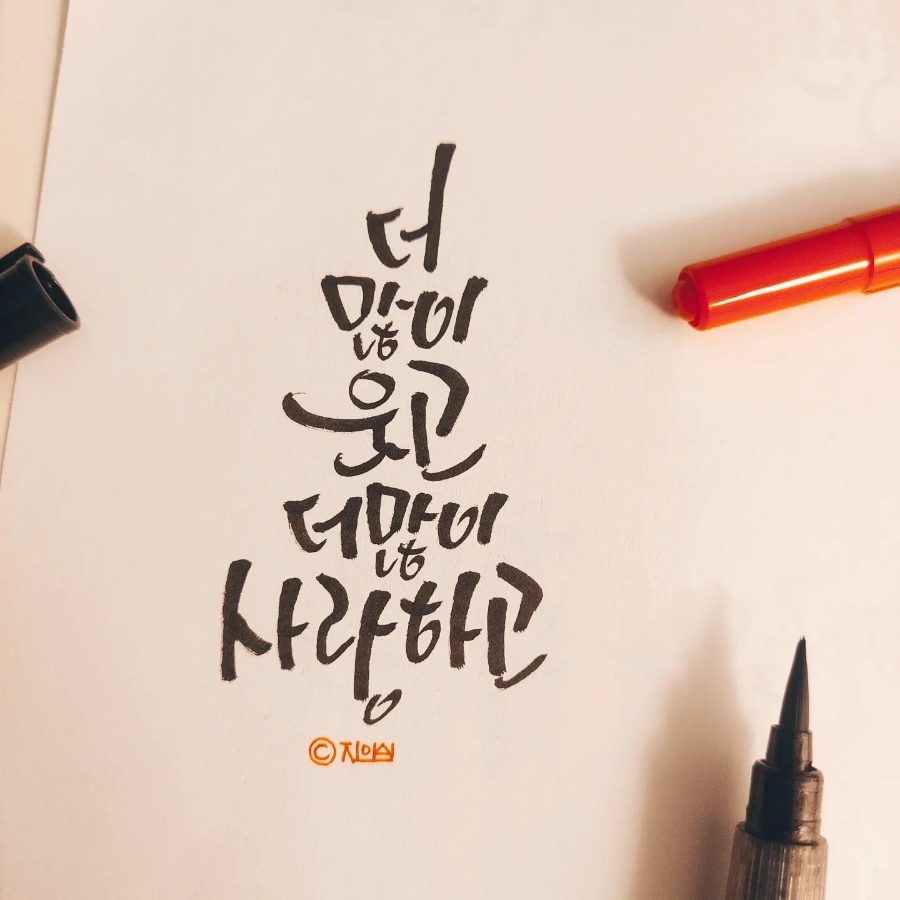 더
많이
웃고
더많이
사랑하고
©지의심